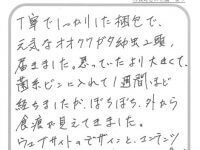 丁寧でしっかりした梱包で、
元気なオオクワガタ幼虫2頭、
届きました。思っていたより大きくて、
菌糸ビンに入れて1週間ほど
経ちましたが、ぼちぼち、外から
食痕が見えてきました。
ウェブサイトのデザインと、コンテンツ